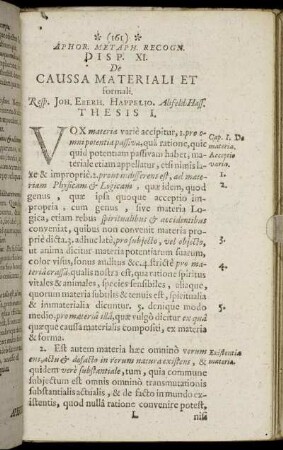 * (161) *
APHOR. METAPH. RECOGN.
DISP. XI.
De
CAUSSA MATERIALI ET
formali.
Resp. JOH. EBERH. HAPPELIO. Alsfeld-Hass.
THESIS I.
VOX materia variè accipitur, 1. pro o- Cap. I. De
mni potentia passiva, quâ ratione, quic materia.
quid potentiam passivam habet, Acceptio
materiale etiam appellatur, etsi nimis la- varia.
xè & impropriè. 2. prout indifferens est, ad mate- 1.
riam Physicam & Logicam, quæ idem, quod 2.
genus, quæ ipsa quoque acceptio im-
propria, cum genus, sive materia Logi-
ca, etiam rebus spiritualibus & accidentibus
conveniat, quibus non convenit materia pro-
priè dicta. 3. adhuc latè, pro subjecto, vel objecto, 3.
ut anima dicitur materia potentiarum suarum,
color visûs, sonus auditûs &c. 4. strictè pro mate-
riâ crassâ: qualis nostra est, quâ ratione spiritus 4.
vitales & animales, species sensibiles, aliaque,
quorum materia subtilis & tenuis est, spiritualia
& immaterialia dicuntur. 5. denique modo 5.
medio. pro materiâ illâ, quæ vulgò dicitur ex quâ
quæque caussa materialis compositi, ex materia
& forma.
2. Est autem materia hæc omninò verum Existentia
ens, actu & defacto in rerum natura existens, & materia.
quidem verè substantiale, tum, quia commune
subjectum est omnis omninò transmutationis
substantialis actualis, & de facto in mundo ex-
istentis, quod nullâ ratione convenire potest,
L nisi